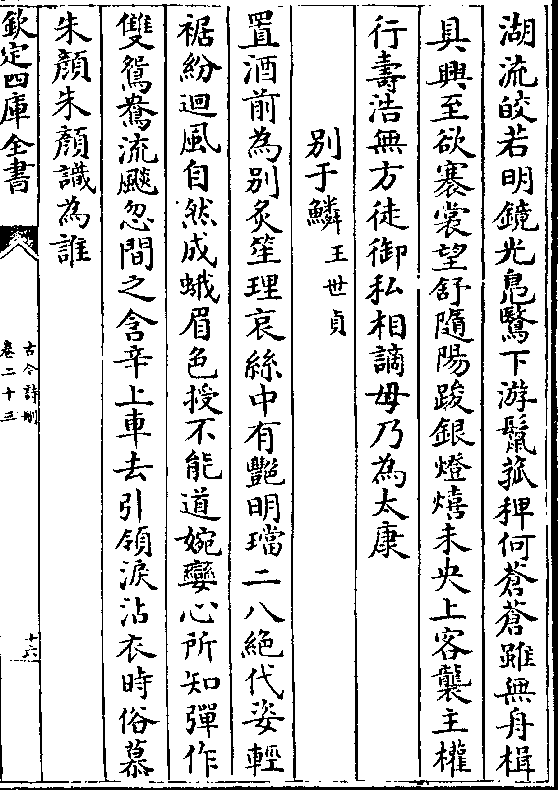 湖流皎若明鏡光鳧鷖下游鬣菰稗何蒼蒼雖無舟楫
具興至欲褰裳望舒隨陽踆銀燈熺未央上客襲主權
行壽浩無方徒御私相謫毋乃為太康
別于鱗 王世貞
置酒前為別炙笙理哀絲中有艷明璫二八絕代姿輕
裾紛迴風自然成蛾眉色授不能道婉孌心所知彈作
雙鴛鴦流飈忽間之含辛上車去引領淚沾衣時俗慕
朱顏朱顏識為誰
欽定四庫全書
古今詩刪
卷二十三
十六